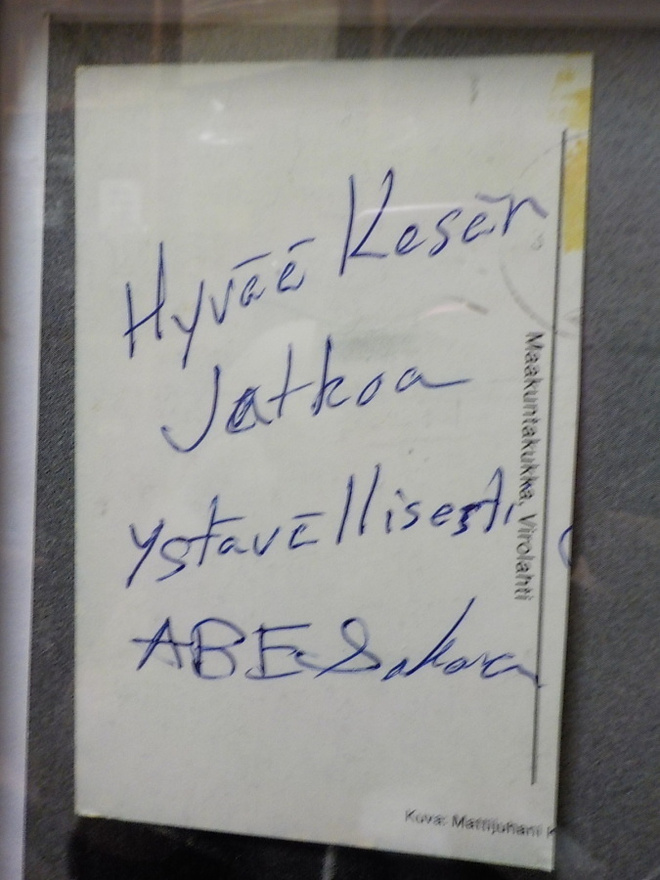 Hyvää Kesän
Jatkoa
ystävällisesti
ABE
Maakuntakukka, Virolahti
Kuva: Mattijuhani K